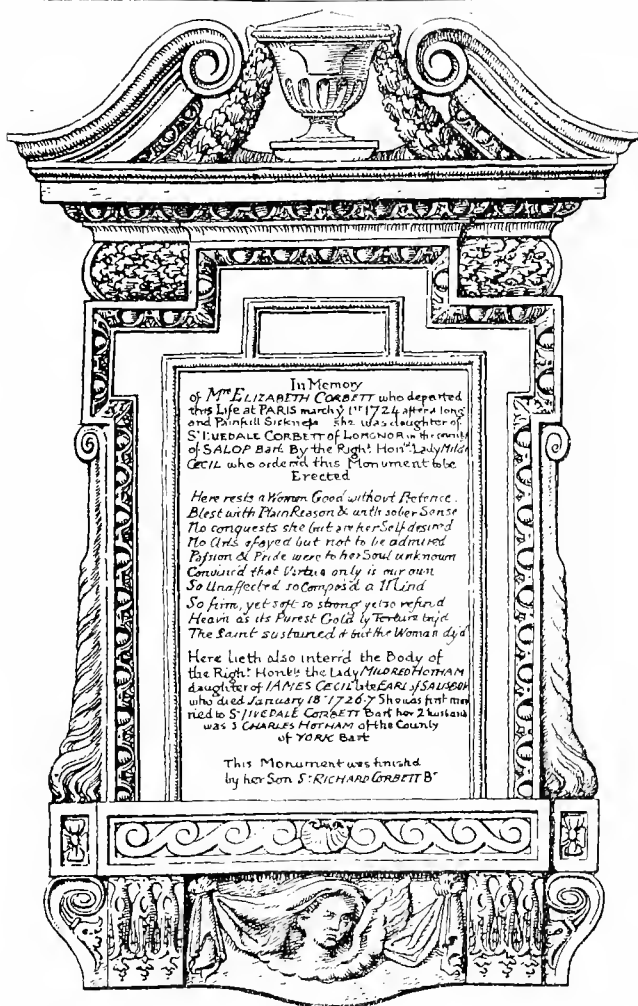 In Memory
of Mrs ELIZABETH CORBETT who departed
this Life at PARIS march ye 1st 1724 after a long
and Painfull Sickness she was daughter of
Sr UVEDALE CORBETT of LONGNOR in the county
of SALOP Bart. By the Right Honble Lady Mildd
CECIL who orderd this Monument to be
Erected
Here rests a Woman Good without Pretence.
Blest with Plain Reason & with sober Sense
No conquests she but her Self desired
No Arts esayed but not to be admired
Passion & Pride were to her Soul unknown
Convinc'd that Virtue only is our own
So Unaffected so Compos'd a Mind
So firm, yet soft so strong yet so refind
Heavn as its Purest Gold by Torture try'd
The Saint sustained it but the Woman dy'd
Here lieth also interr'd the Body of
the Right Honble the Lady MILDRED HOTHAM
daughter of IAMES CECIL late EARL of SALISBURY
who died January 18th 1726-7 She was first mar
ried to Sr UVEDALE CORBETT Bart her 2 husband
was S CHARLES HOTHAM of the County
of YORK Bart
This Monument was finished
by her Son Sr RICHARD CORBETT Br